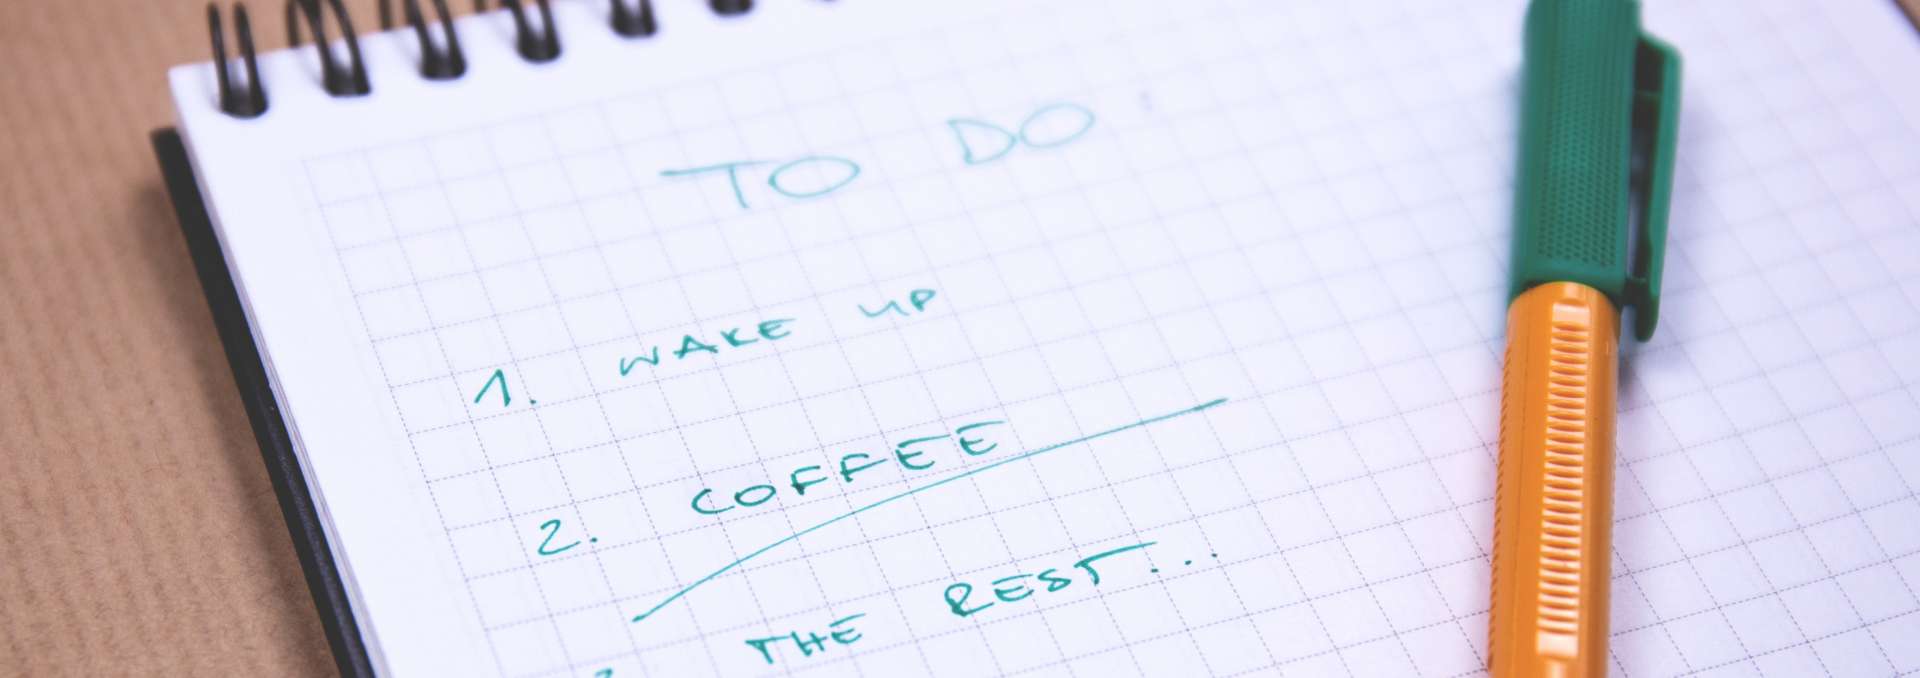 TO DO:
1. WAKE UP
2. COFFEE
THE REST...